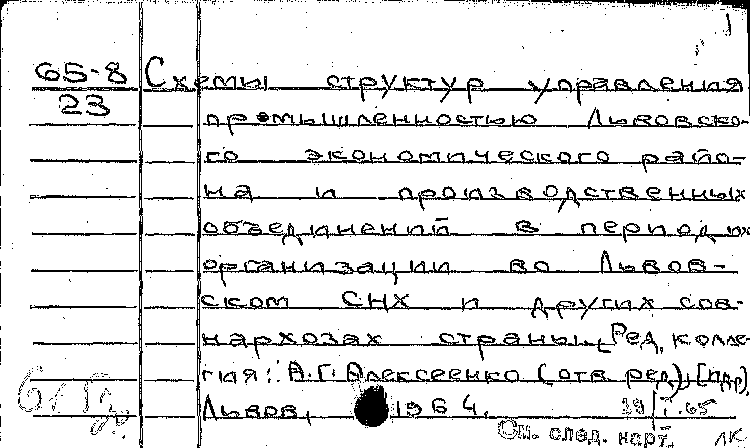 65-8 Схемы структур управления
23 промышленностью Львовско-
го экономического райо-
на и производственных
объединений в период их
организации во Львов-
ском СНХ и других сов-
нархозах страны. [Ред. колле-
гия: А.Г. Алексеенко (отв. ред.), [и др.]
Львов, 1964.
См. след. карт.